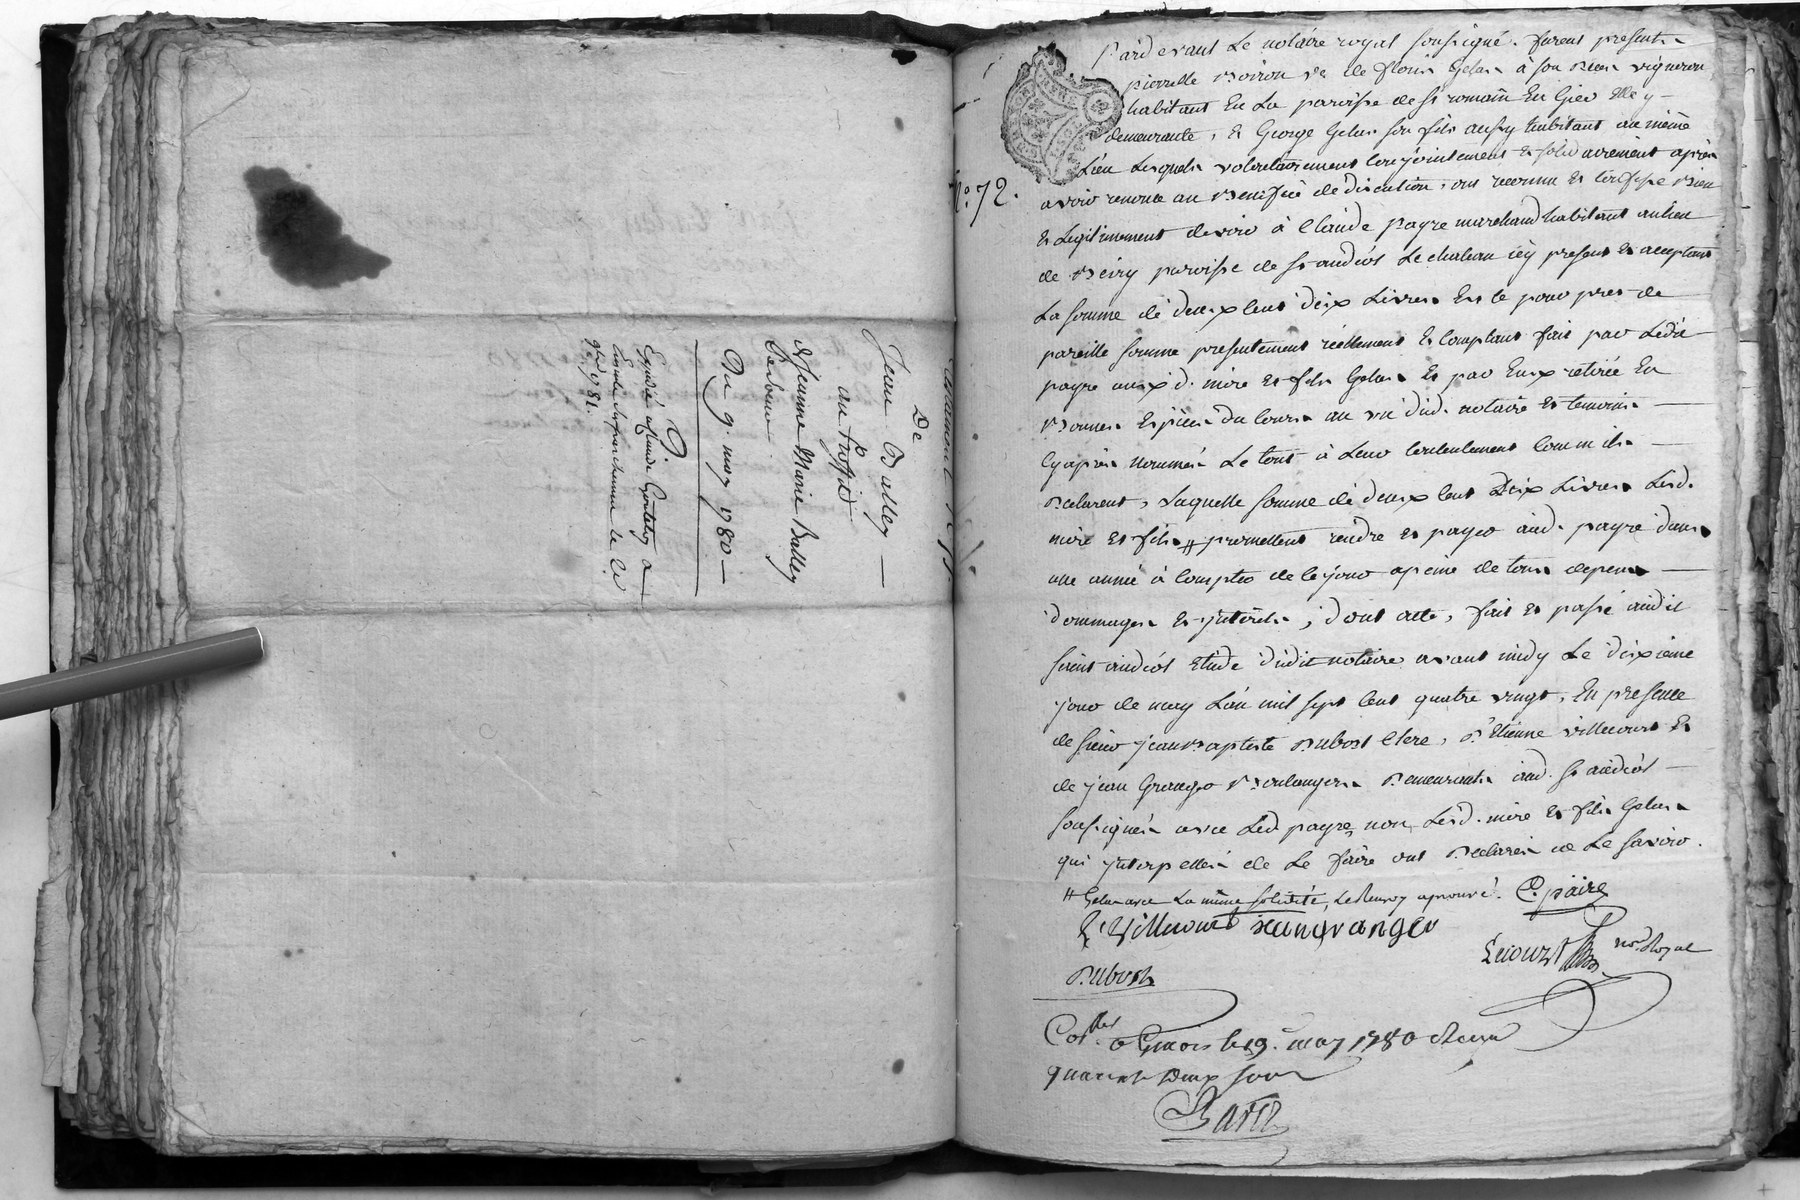 De
Jean Balley
au proffit
de Jeanne Marie Balley
Du 9. may 1780
Expedié a Claude
9bre 1781.
N.o 72.
Pardevant Le notaire royal soussigné. furent presents
pierrette Boiron ve de fleury Gelas à son vivant vigneron
habitant En La paroisse de st romain En Gier Elle y
demeurante, Et George Gelas son fils aussy habitant au même
Lieu Lesquels volontairement Conjointement et solidairement après
avoir renoncé au Benefice de discution, ont reconnu Et Confessé Bien
Et Legitimement devoir à Claude payre marchand habitant au lieu
de paroisse de st andéol Le chateau icy present Et acceptant
La somme de deux cent dix Livres Et ce pour pret de
pareille somme presentement réellement Et Comptant fait par Ledit
payre auxd. mere Et fils Gelas Et par Eux retirée En
Bonnes Espèces du Cours au vu dud. notaire Et temoins
Cyaprès nommés Le tout à Leur Contentement Comm ils
Declarent, Laquelle somme de deux cent Dix Livres Lesd.
mere Et fils # promettent rendre Et payer aud. payre dans
une année à Compter de ce jour apeine de tous depens
dommages Et jnterêts ; dont acte, fait Et passé audit
saint andéol Etude dudit notaire avant midy Le dixieme
jour de may L'an mil sept cent quatre vingt, En presence
de sieur jean Baptiste Dubost Clerc, d'Etienne villecourt Et
de jean Granger Boulangers Demeurants aud. st andéol
soussignés avec Led payre, non Lesd. mere Et fils Gelas
qui jnterpellés de Le faire ont Declarés ne Le savoir.
# Gelas avec La même solidité, Le Renvoy aprouvé. C. paire
E. Villecourt jean granger
Lecourt no.re Royal
Dubost
Co.lé a Givors le 19. may 1780 Reçu
quarante Deux sous